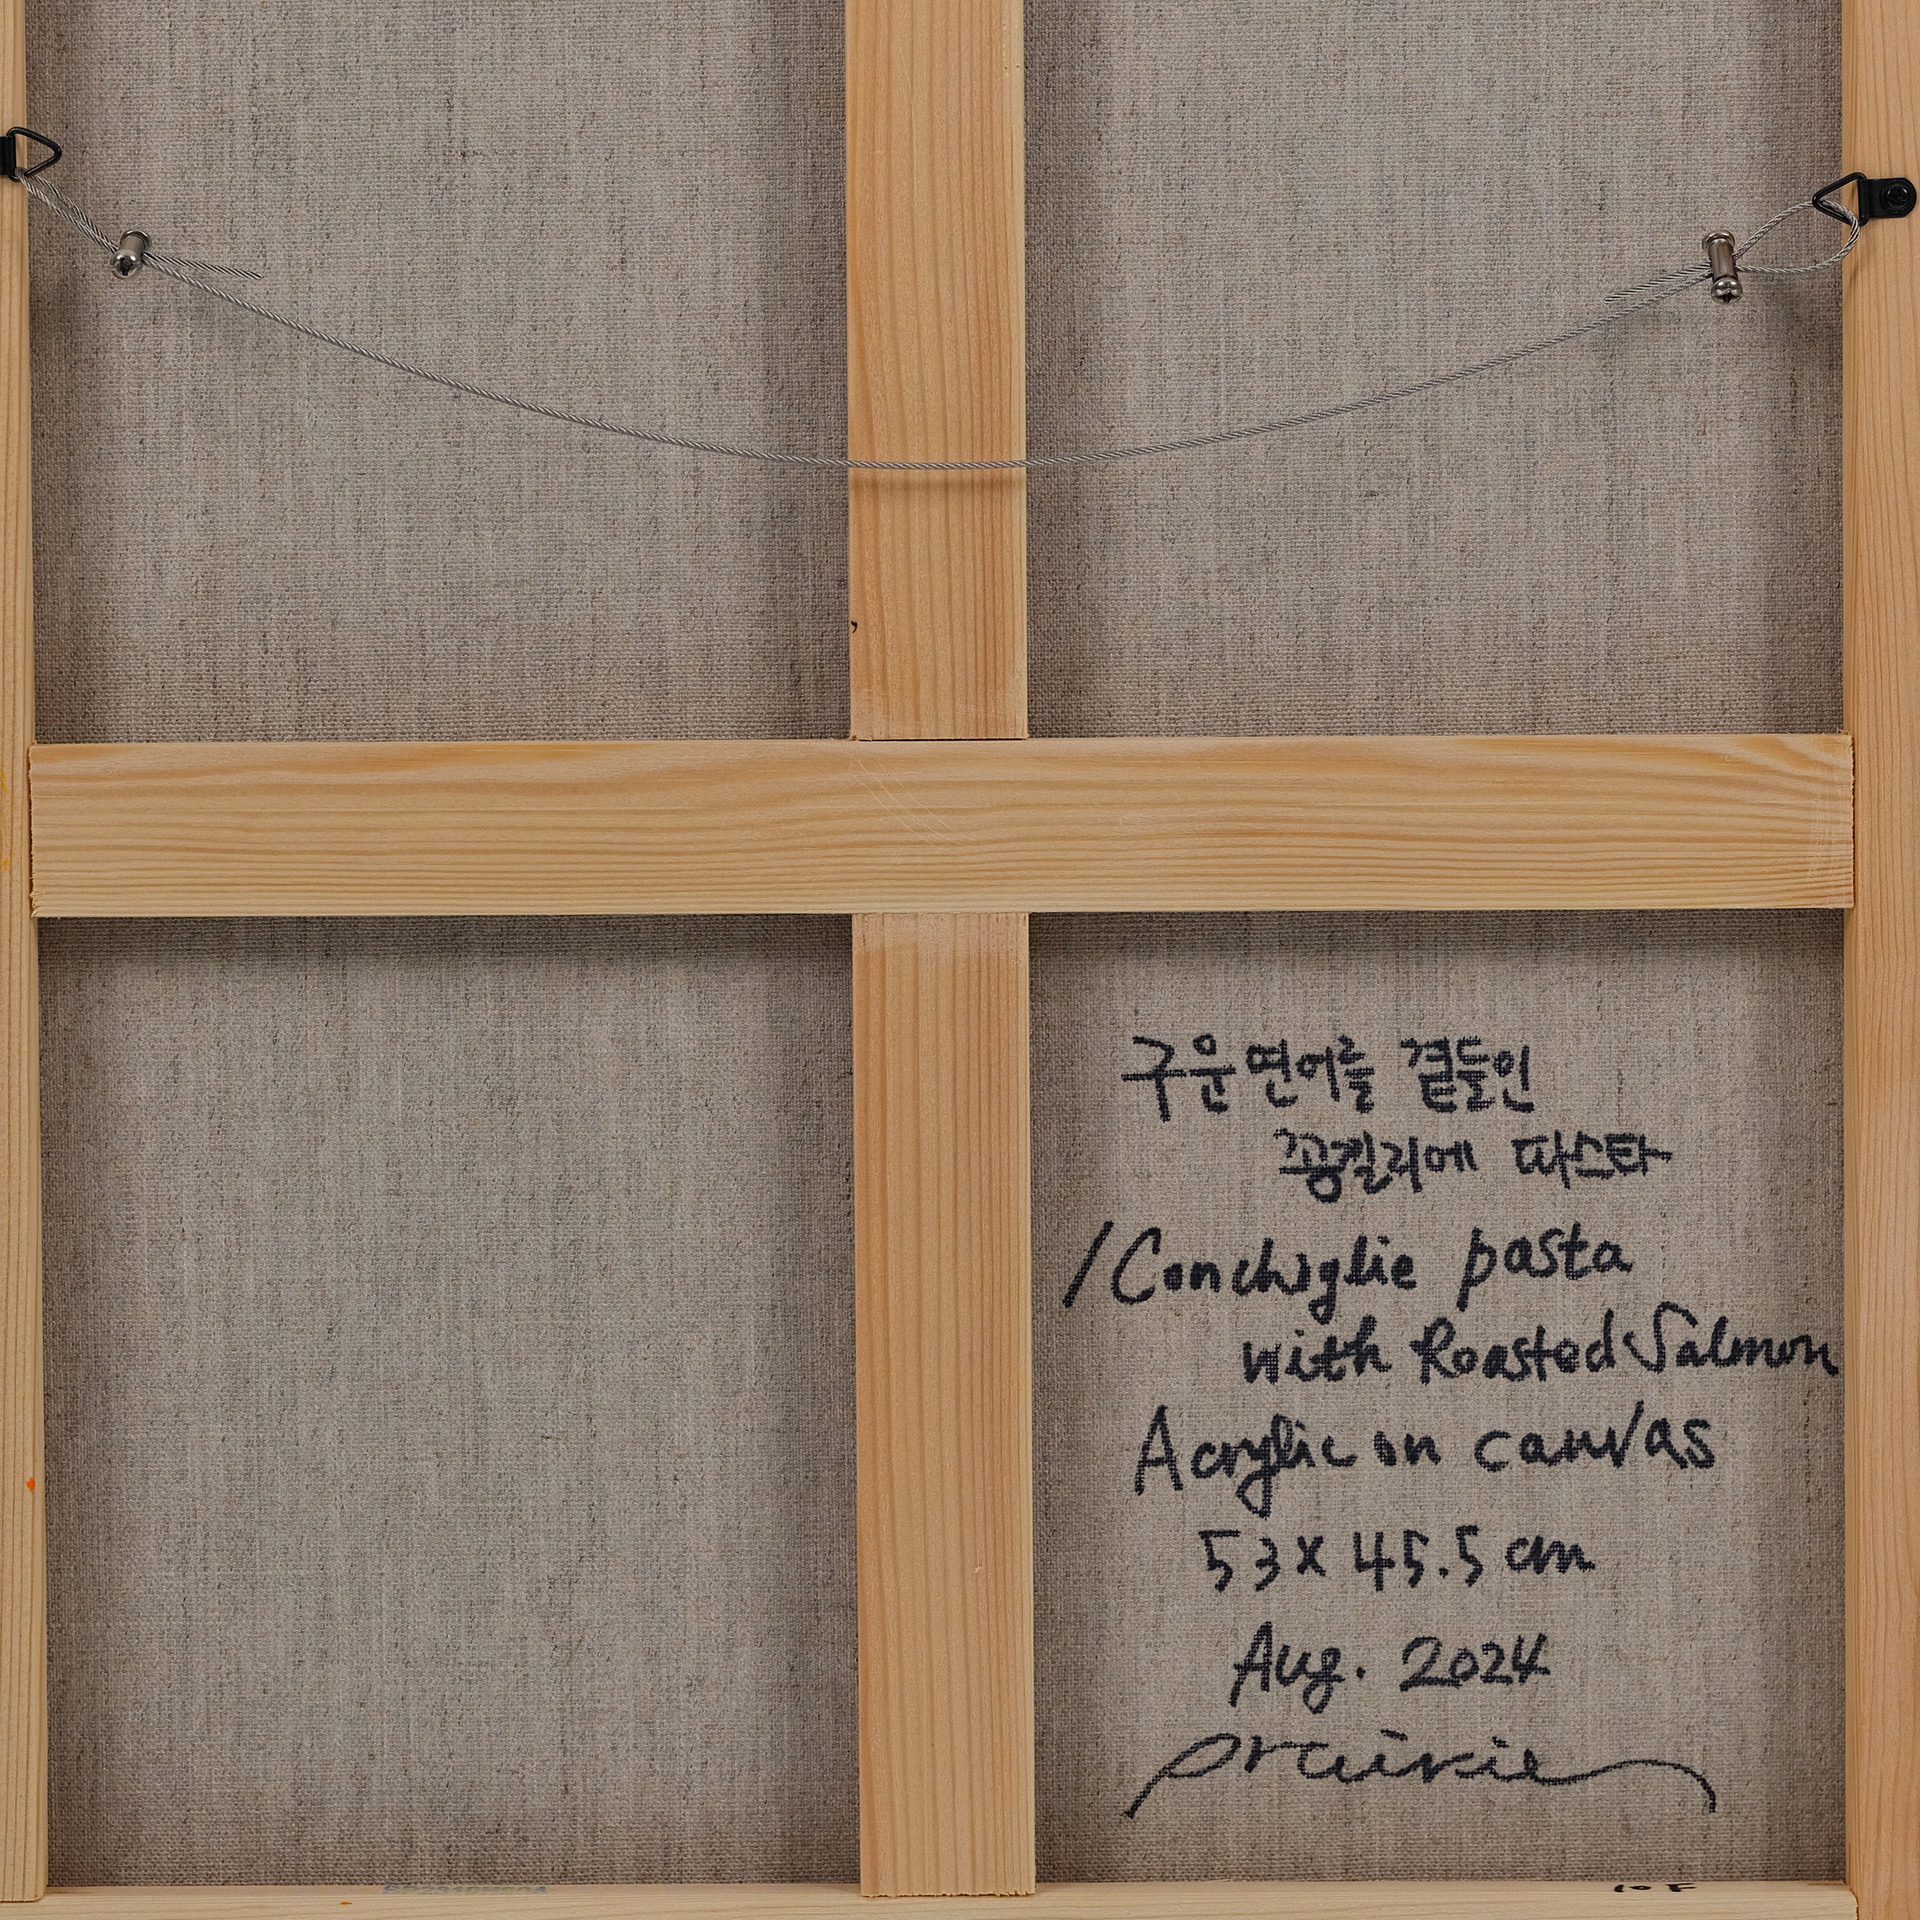 구운 연어를 곁들인
꽁킬리에 파스타
/Conchiglie pasta
with Roasted Salmon
Acrylic on canvas
53x 45.5 cm
Aug. 2024
prairie
10F